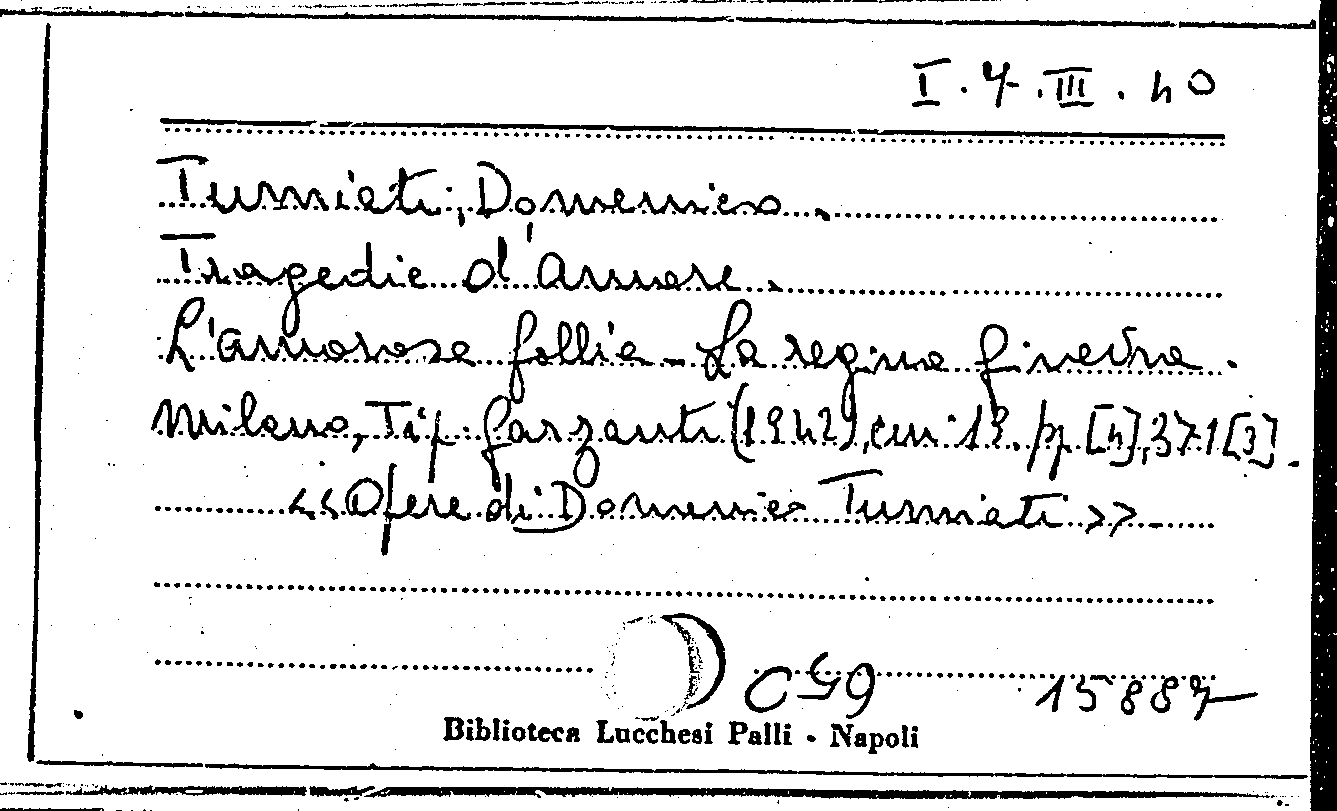 I.7.III.40
Tumiati, Domenico.
Tragedie d'amore.
L'amorosa follia - La regina Ginevra.
Milano, Tip. Garzanti (1942), cm. 19. pp. [4], 371 [3].
<<Opere di Domenico Tumiati>>
059 15887
Biblioteca Lucchesi Palli - Napoli